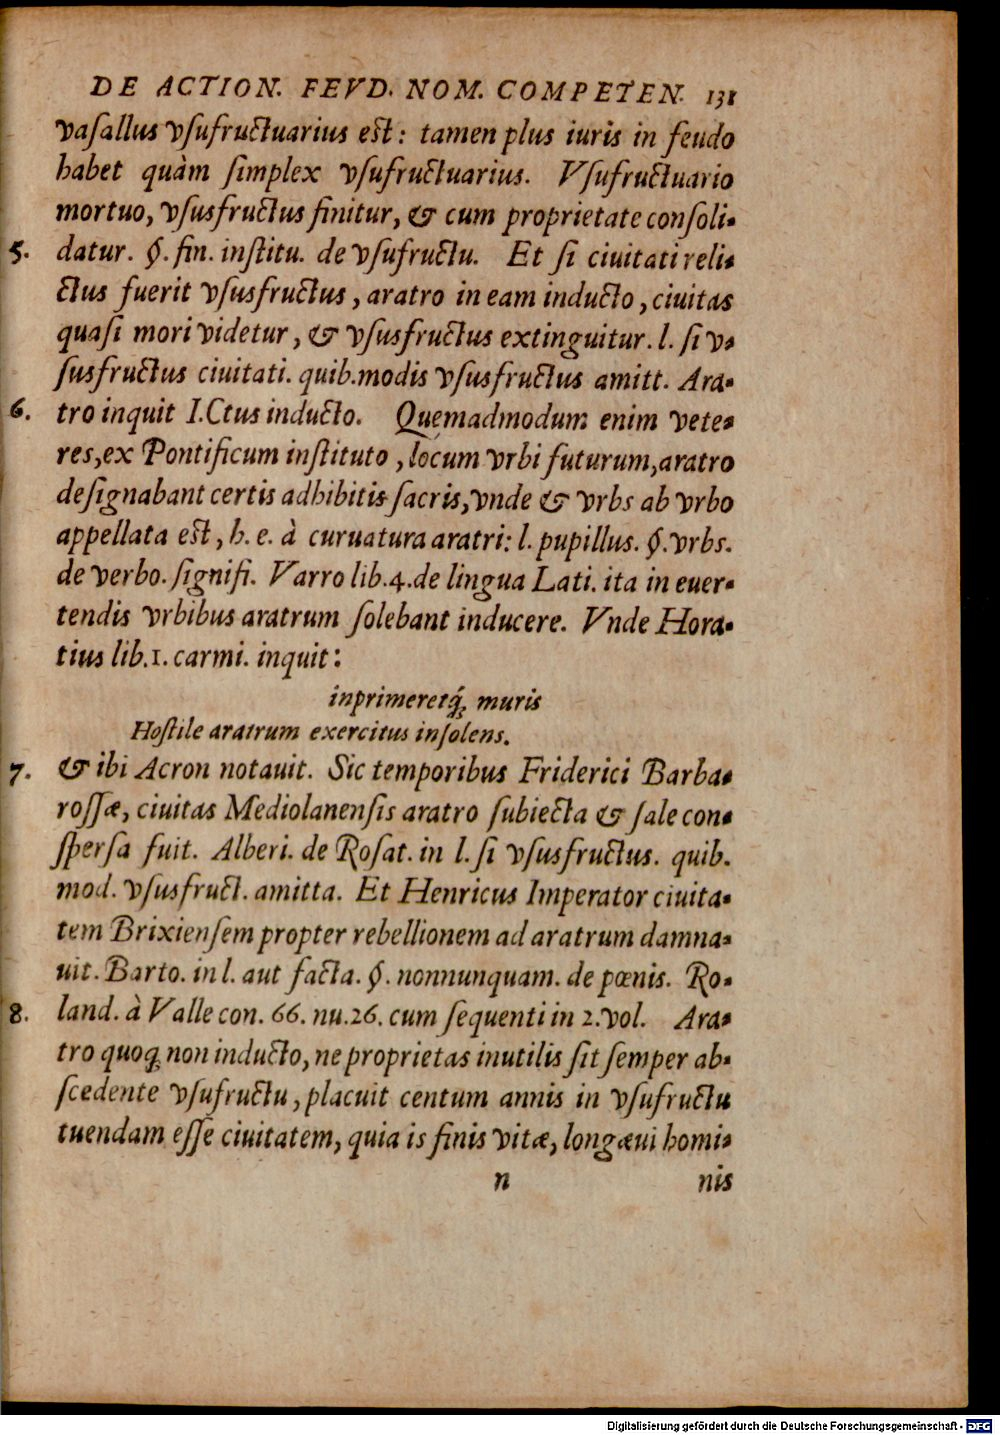 DE ACTION. FEVD. NOM. COMPETEN. 131
vaſallus vſufructuarius eſt: tamen plus iuris in feudo
habet quàm ſimplex vſufructuarius. Vſufructuario
mortuo, vſusfructus finitur, & cum proprietate conſoli-
5. datur. §. fin. inſtitu. de vſufructu. Et ſi ciuitati reli-
ctus fuerit vſusfructus, aratro in eam inducto, ciuitas
quaſi mori videtur, & vſusfructus extinguitur. l. ſi v-
ſusfructus ciuitati. quib. modis vſusfructus amitt. Ara-
6. tro inquit I.Ctus inducto. Quemadmodum enim vete-
res, ex Pontificum inſtituto, locum vrbi futurum, aratro
deſignabant certis adhibitis ſacris, vnde & vrbs ab vrbo
appellata eſt, h. e. à curuatura aratri: l. pupillus. §. vrbs.
de verbo. ſignifi. Varro lib. 4. de lingua Lati. ita in euer-
tendis vrbibus aratrum ſolebant inducere. Vnde Hora-
tius lib. 1. carmi. inquit:
inprimeretq́; muris
Hoſtile aratrum exercitus inſolens.
7. & ibi Acron notauit. Sic temporibus Friderici Barba-
roſſæ, ciuitas Mediolanenſis aratro ſubiecta & ſale con-
ſperſa fuit. Alberi. de Roſat. in l. ſi vſusfructus. quib.
mod. vſusfruct. amitta. Et Henricus Imperator ciuita-
tem Brixienſem propter rebellionem ad aratrum damna-
uit. Barto. in l. aut facta. §. nonnunquam. de pœnis. Ro-
8. land. à Valle con. 66. nu. 26. cum ſequenti in 2. vol. Ara-
tro quoq; non inducto, ne proprietas inutilis ſit ſemper ab-
ſcedente vſufructu, placuit centum annis in vſufructu
tuendam eſſe ciuitatem, quia is finis vitæ, longæui homi-
n nis
Digitalisierung gefördert durch die Deutsche Forschungsgemeinschaft - DFG